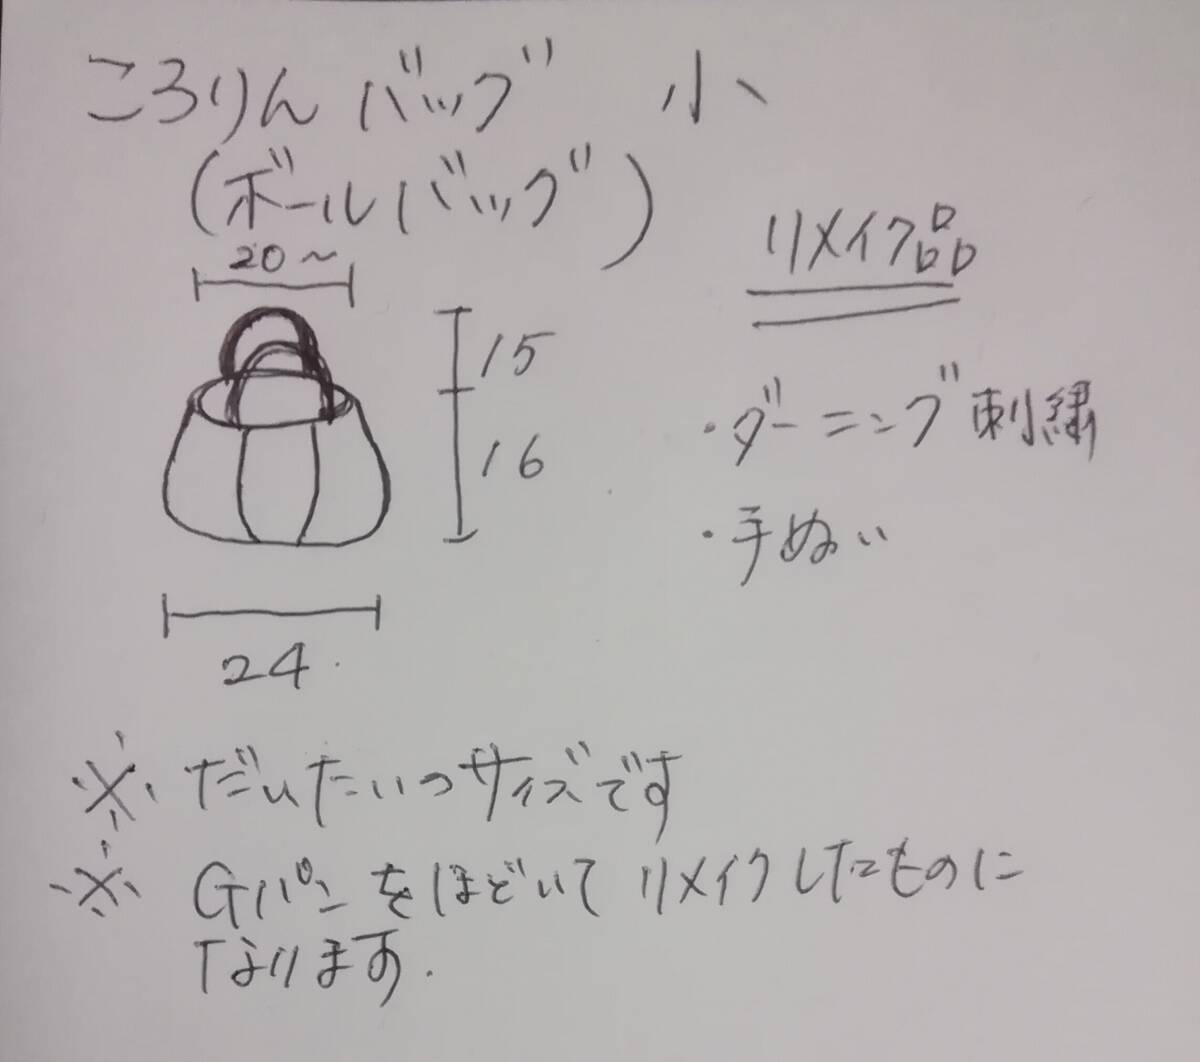 ころりんバッグ 小
(ボールバッグ)
リメイク品
20〜
15
16
24
・ダーニング刺繍
・手ぬい
※ だいたいのサイズです
※ Gパンをほどいてリメイクしたものに
なります.